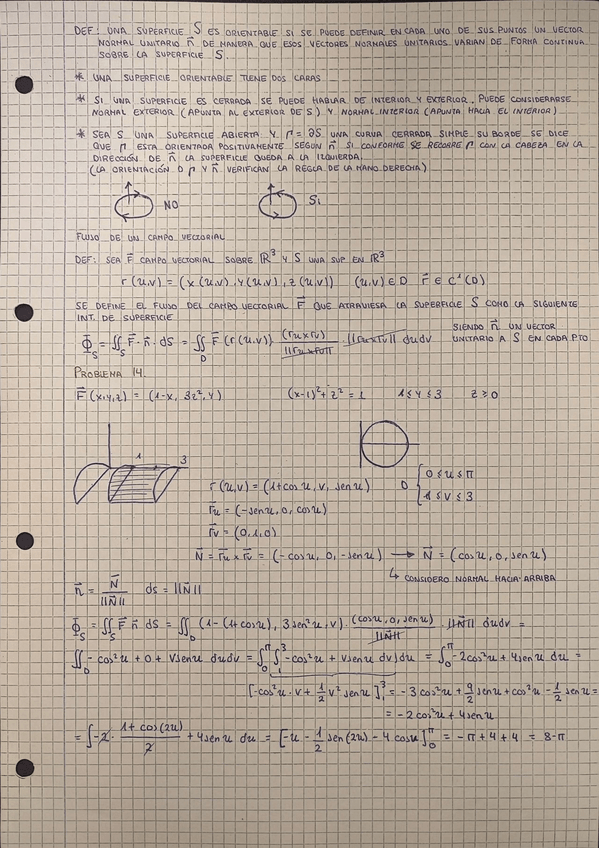 DEF: UNA SUPERFICIE S ES ORIENTABLE SI SE PUEDE DEFINIR EN CADA UNO DE SUS PUNTOS UN VECTOR
NORMAL UNITARIO n⃗ DE MANERA QUE ESOS VECTORES NORMALES UNITARIOS VARIAN DE FORMA CONTINUA
SOBRE LA SUPERFICIE S.
* UNA SUPERFICIE ORIENTABLE TIENE DOS CARAS
* SI UNA SUPERFICIE ES CERRADA SE PUEDE HABLAR DE INTERIOR Y EXTERIOR. PUEDE CONSIDERARSE
NORMAL EXTERIOR (APUNTA AL EXTERIOR DE S) Y NORMAL INTERIOR (APUNTA HACIA EL INTERIOR)
* SEA S UNA SUPERFICIE ABIERTA Y Γ = ∂S UNA CURVA CERRADA SIMPLE SU BORDE. SE DICE
QUE Γ ESTA ORIENTADA POSITIVAMENTE SEGUN n⃗ SI CONFORME SE RECORRE Γ CON LA CABEZA EN LA
DIRECCIÓN DE n⃗ LA SUPERFICIE QUEDA A LA IZQUIERDA.
(LA ORIENTACIÓN D Γ Y n⃗ VERIFICAN LA REGLA DE LA MANO DERECHA)
NO
Si
FLUJO DE UN CAMPO VECTORIAL
DEF: SEA F⃗ CAMPO VECTORIAL SOBRE ℝ³ Y S UNA SUP EN ℝ³
r(u,v) = (x(u,v), y(u,v), z(u,v)) (u,v) ∈ D r⃗ ∈ C¹(D)
SE DEFINE EL FLUJO DEL CAMPO VECTORIAL F⃗ QUE ATRAVIESA LA SUPERFICIE S COMO LA SIGUIENTE
INT. DE SUPERFICIE
Φ_S = ∬_S F⃗ · n⃗ · dS = ∬_D F⃗(r(u,v)) (ru x rv)/||ru x rv|| · ||ru x rv|| dudv
SIENDO n⃗ UN VECTOR
UNITARIO A S EN CADA PTO
PROBLEMA 14.
F⃗(x,y,z) = (1-x, 3z², y) (x-1)² + z² = 1 1 ≤ y ≤ 3 z ≥ 0
1 3
r(u,v) = (1+cos u, v, sen u) D { 0 ≤ u ≤ π
1 ≤ v ≤ 3
r⃗u = (-sen u, 0, cos u)
r⃗v = (0,1,0)
N⃗ = r⃗u x r⃗v = (-cos u, 0, -sen u) → N⃗ = (cos u, 0, sen u)
↳ CONSIDERO NORMAL HACIA ARRIBA
n⃗ = N⃗/||N⃗|| ds = ||N⃗||
Φ_S = ∬_S F⃗ n⃗ dS = ∬_D (1-(1+cos u), 3sen²u, v) · (cos u, 0, sen u)/||N⃗|| · ||N⃗|| dudv =
∬_D -cos²u + 0 + v sen u dudv = ∫_0^π ∫_1^3 -cos²u + v sen u dv) du = ∫_0^π -2cos²u + 4sen u du =
[-cos²u · v + 1/2 v² sen u]_1^3 = -3cos²u + 9/2 sen u + cos²u - 1/2 sen u =
= -2cos²u + 4sen u
= ∫ -2 · (1+cos(2u))/2 + 4sen u du = [-u - 1/2 sen(2u) - 4cos u]_0^π = -π + 4 + 4 = 8-π